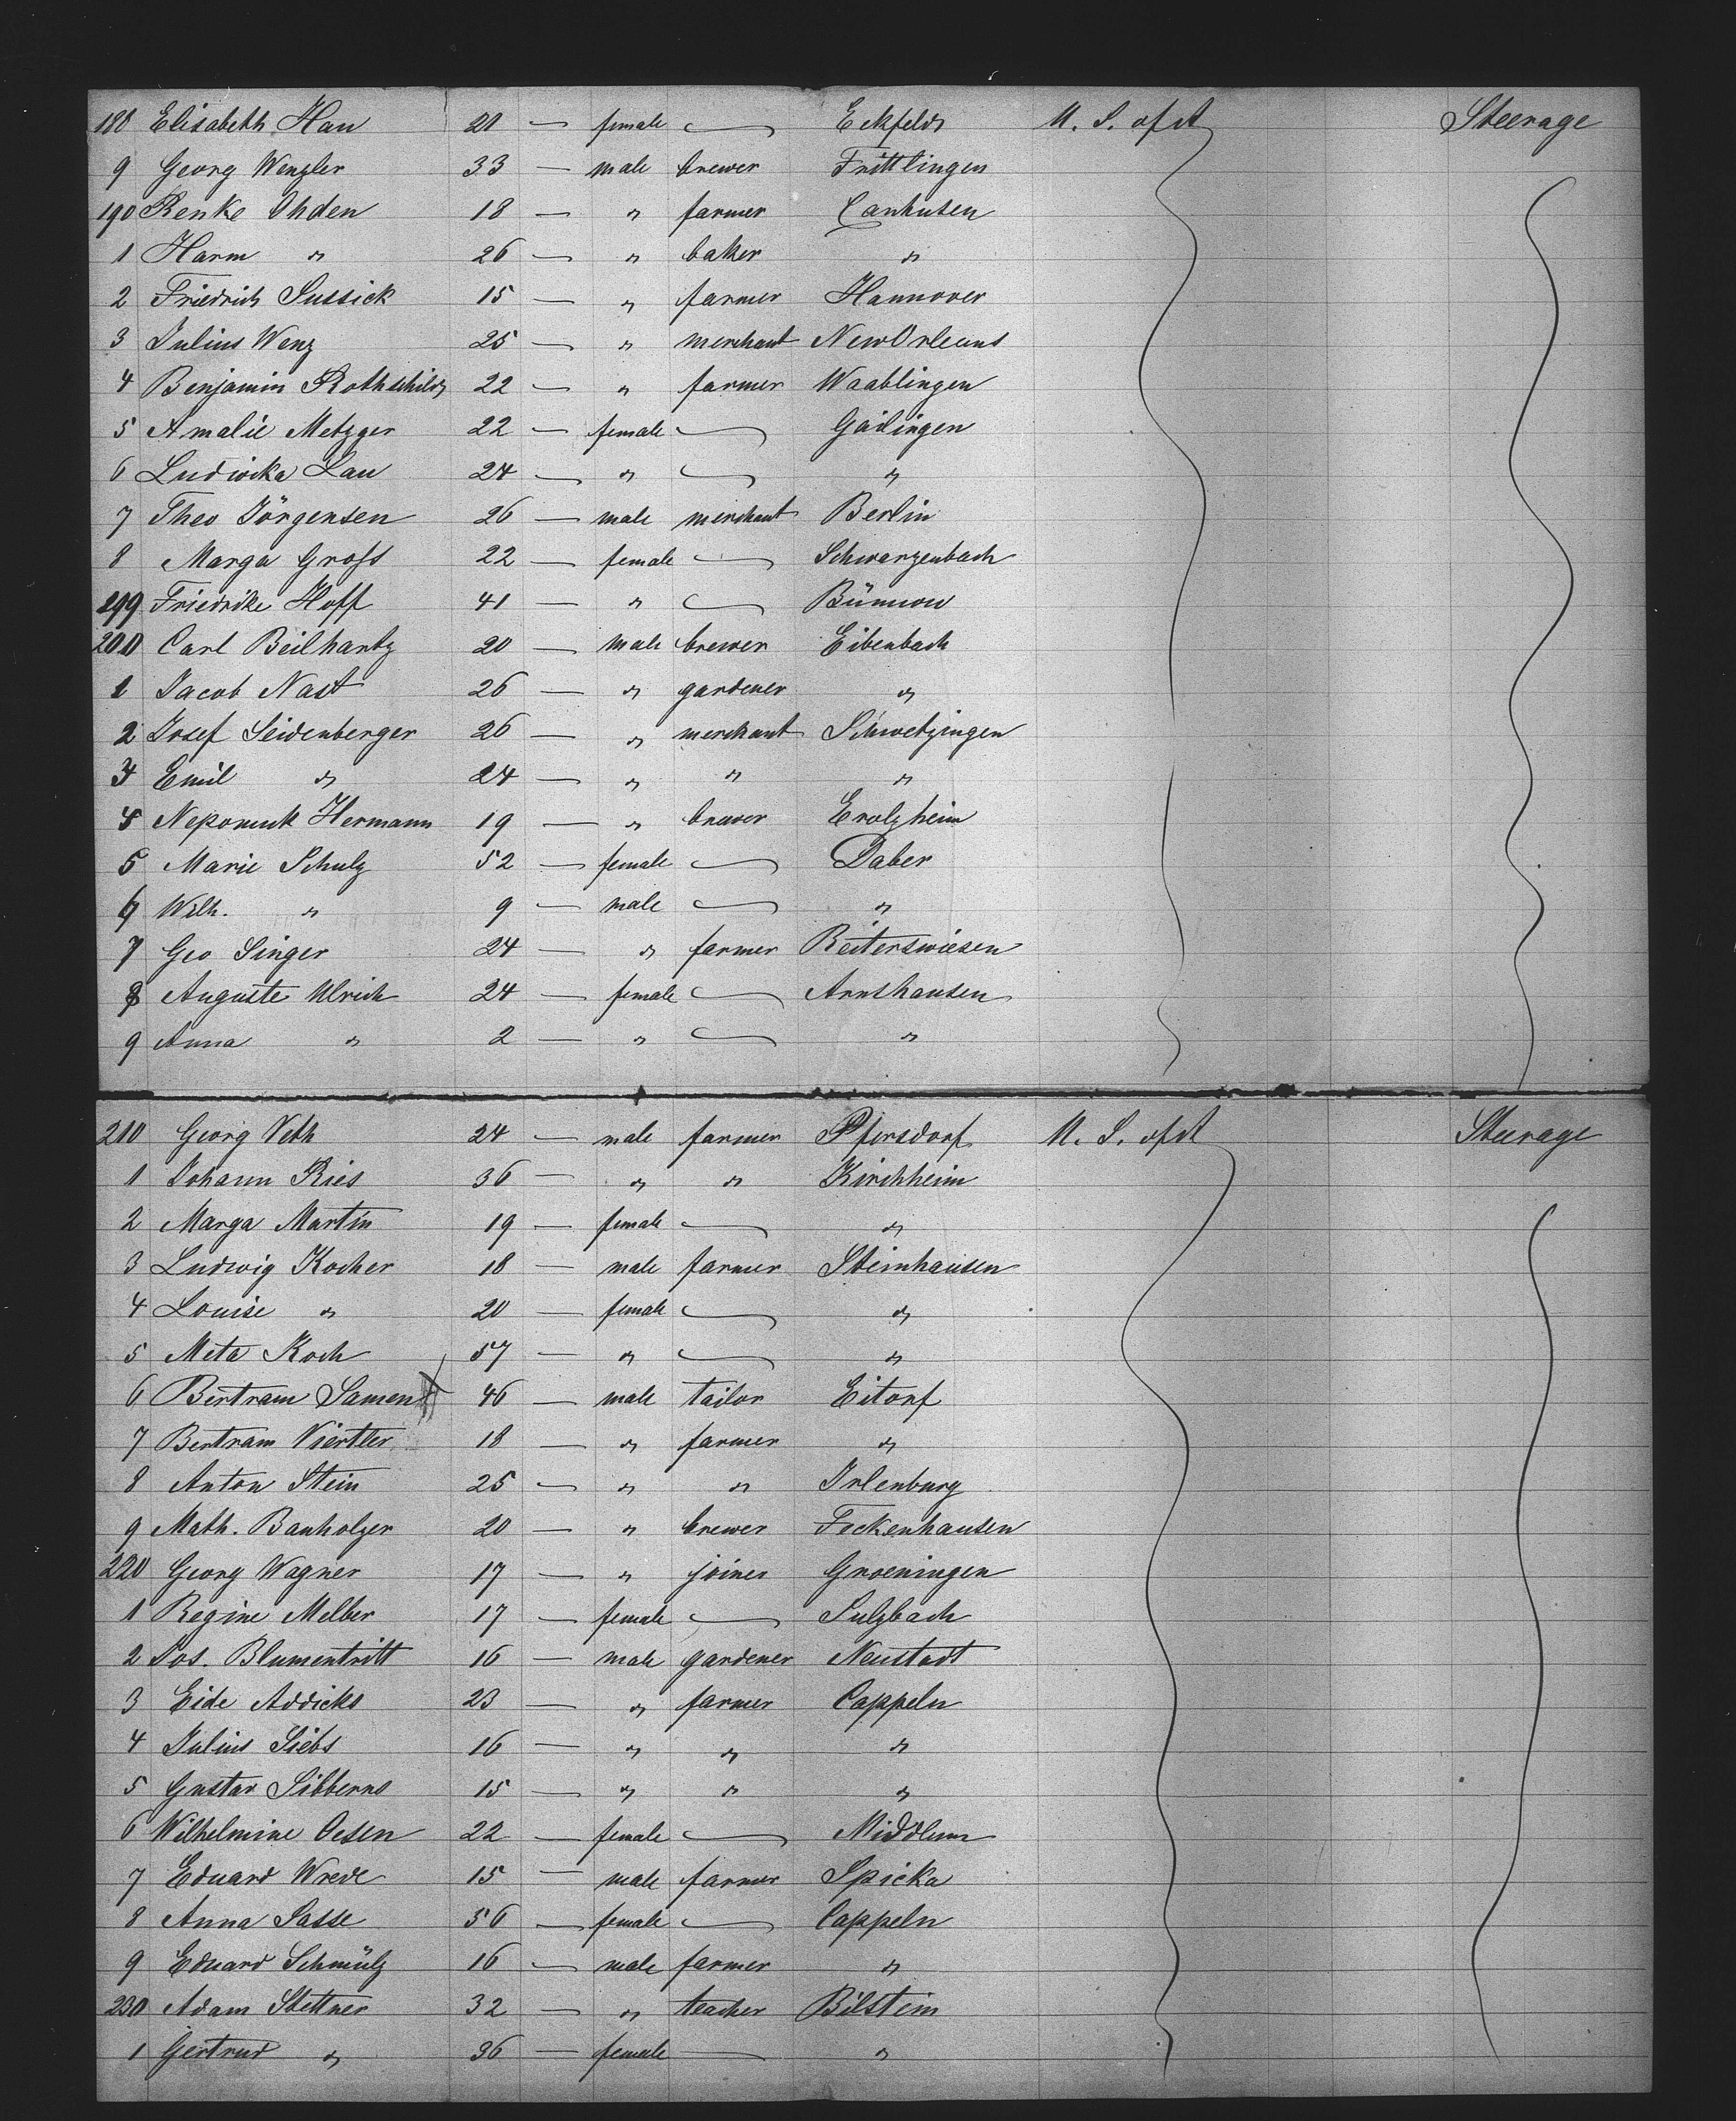 188 Elisabeth Hau 20 — female — Eckfeld U. S. of A Steerage
9 Georg Wenzler 33 — male brewer Frittlingen
190 Renke Ohden 18 — " farmer Canhusen
1 Harm " 26 — " baker "
2 Friedrich Sussick 15 — " farmer Hannover
3 Julius Wenz 25 — " merchant New Orleans
4 Benjamin Rothschild 22 — " farmer Waablingen
5 Amalie Metzger 22 — female — Gailingen
6 Ludwika Lau 24 — " — "
7 Theo Jörgensen 26 — male merchant Berlin
8 Marga Gross 22 — female — Schwarzenbach
199 Friedrike Hoff 41 — " — Bünnow
200 Carl Beilhartz 20 — male brewer Eibenbach
1 Jacob Nast 26 — " gardener "
2 Josef Seidenberger 26 — " merchant Schwetzingen
3 Emil " 24 — " " "
4 Nepomuk Hermann 19 — " brewer Erolzheim
5 Marie Schulz 52 — female — Daber
6 Wilh. " 9 — male — "
7 Geo Singer 24 — " farmer Reiterswiesen
8 Auguste Ulrich 24 — female — Arnshausen
9 Anna " 2 — " — "
210 Georg Veth 24 — male farmer Pfersdorf U. S. of A Steerage
1 Johann Ries 36 — " " Kirchheim
2 Marga Martin 19 — female — "
3 Ludwig Kocher 18 — male farmer Steinhausen
4 Louise " 20 — female — "
5 Meta Koch 57 — " — "
6 Bertram Sament 46 — male tailor Eitorf
7 Bertram Viertler 18 — " farmer "
8 Anton Stein 25 — " " Irlenburg
9 Math. Banholzer 20 — " brewer Feckenhausen
220 Georg Wagner 17 — " joiner Groeningen
1 Regine Melber 17 — female — Sulzbach
2 Jos. Blumentritt 16 — male gardener Neustadt
3 Eide Addicks 23 — " farmer Cappeln
4 Julius Siebs 16 — " " "
5 Gustav Sibberns 15 — " " "
6 Wilhelmine Oesen 22 — female — Middlum
7 Eduard Wrede 15 — male farmer Spicka
8 Anna Sasse 56 — female — Cappeln
9 Eduard Schmülz 16 — male farmer "
230 Adam Stettner 32 — " teacher Bilstein
1 Gertrud " 36 — female — "